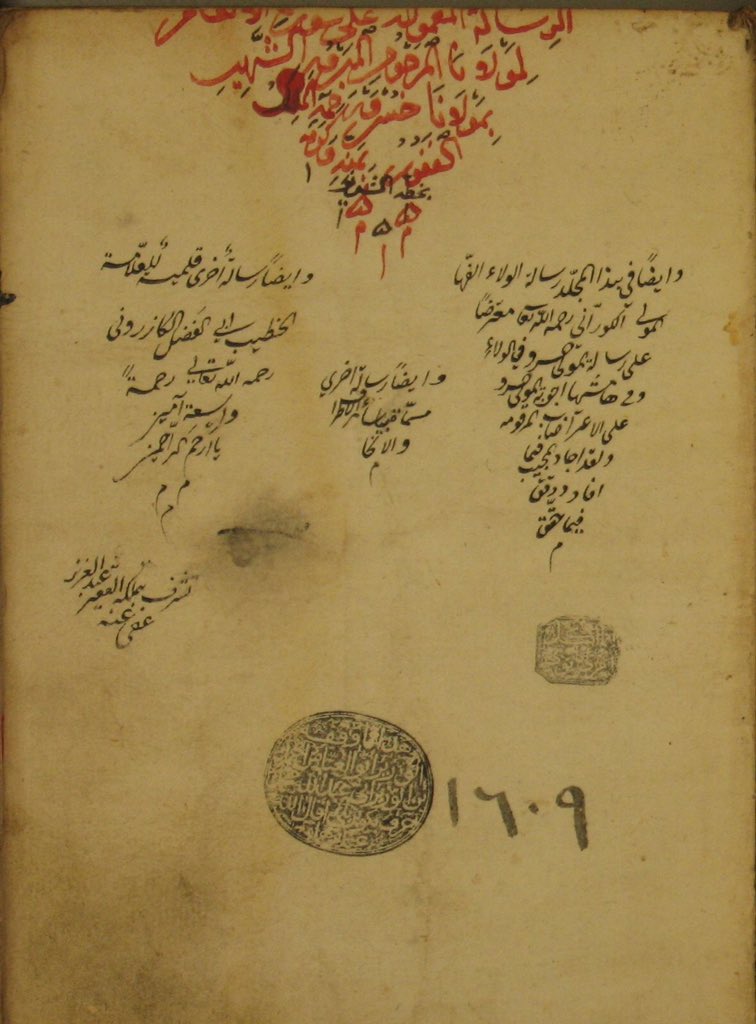 الرسالة المعمولة على سورة الانعام
لمولانا المرحوم المبرور الشهير
بمولانا خسرو رحمه الملك
الغفور بمنه وكرمه
بخطه الشريف
وايضا في هذا المجلد رسالة الولاء الفها
المولى الكوراني رحمه الله تعا معترضا
على رسالة المولى خسرو في الولاء
وفي هامشها اجوبة المولى خسرو
على الاعتراضات المرقومة
ولقد اجاد المجيب فيما
افاد ودقق
فيما حقق
م
وايضا رسالة اخرى
مسماة
والا
م
وايضا رسالة اخرى قلمية للعلامة
الخطيب ابي الفضل الكازروني
رحمه الله تعالى رحمة
واسعة آمين
يا ارحم الراحمين
م م م
تشرف بتملكه الفقير عبد العزيز
عفي عنه
١٦٠٩